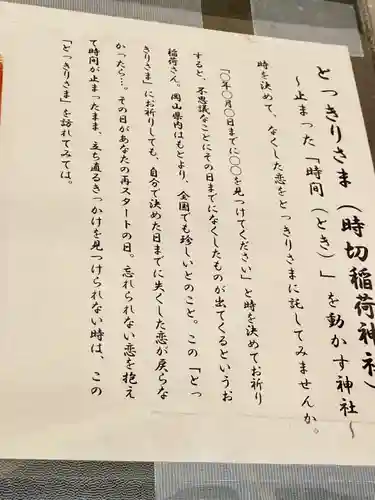 とっきりさま（時切稲荷神社）
～止まった「時間（とき）」を動かす神社～
時を決めて、なくした恋をとっきりさまに託してみませんか。
「〇年〇月〇日までに〇〇を見つけてください」と時を決めてお祈り
すると、不思議なことにその日までになくしたものが出てくるというお
稲荷さん。岡山県内はもとより、全国でも珍しいとのこと。この「とっ
きりさま」にお祈りしても、自分で決めた日までに失くした恋が戻らな
かったら…。その日があなたの再スタートの日。忘れられない恋を抱え
て時間が止まったまま、立ち直るきっかけを見つけられない時は、この
「とっきりさま」を訪れてみては。